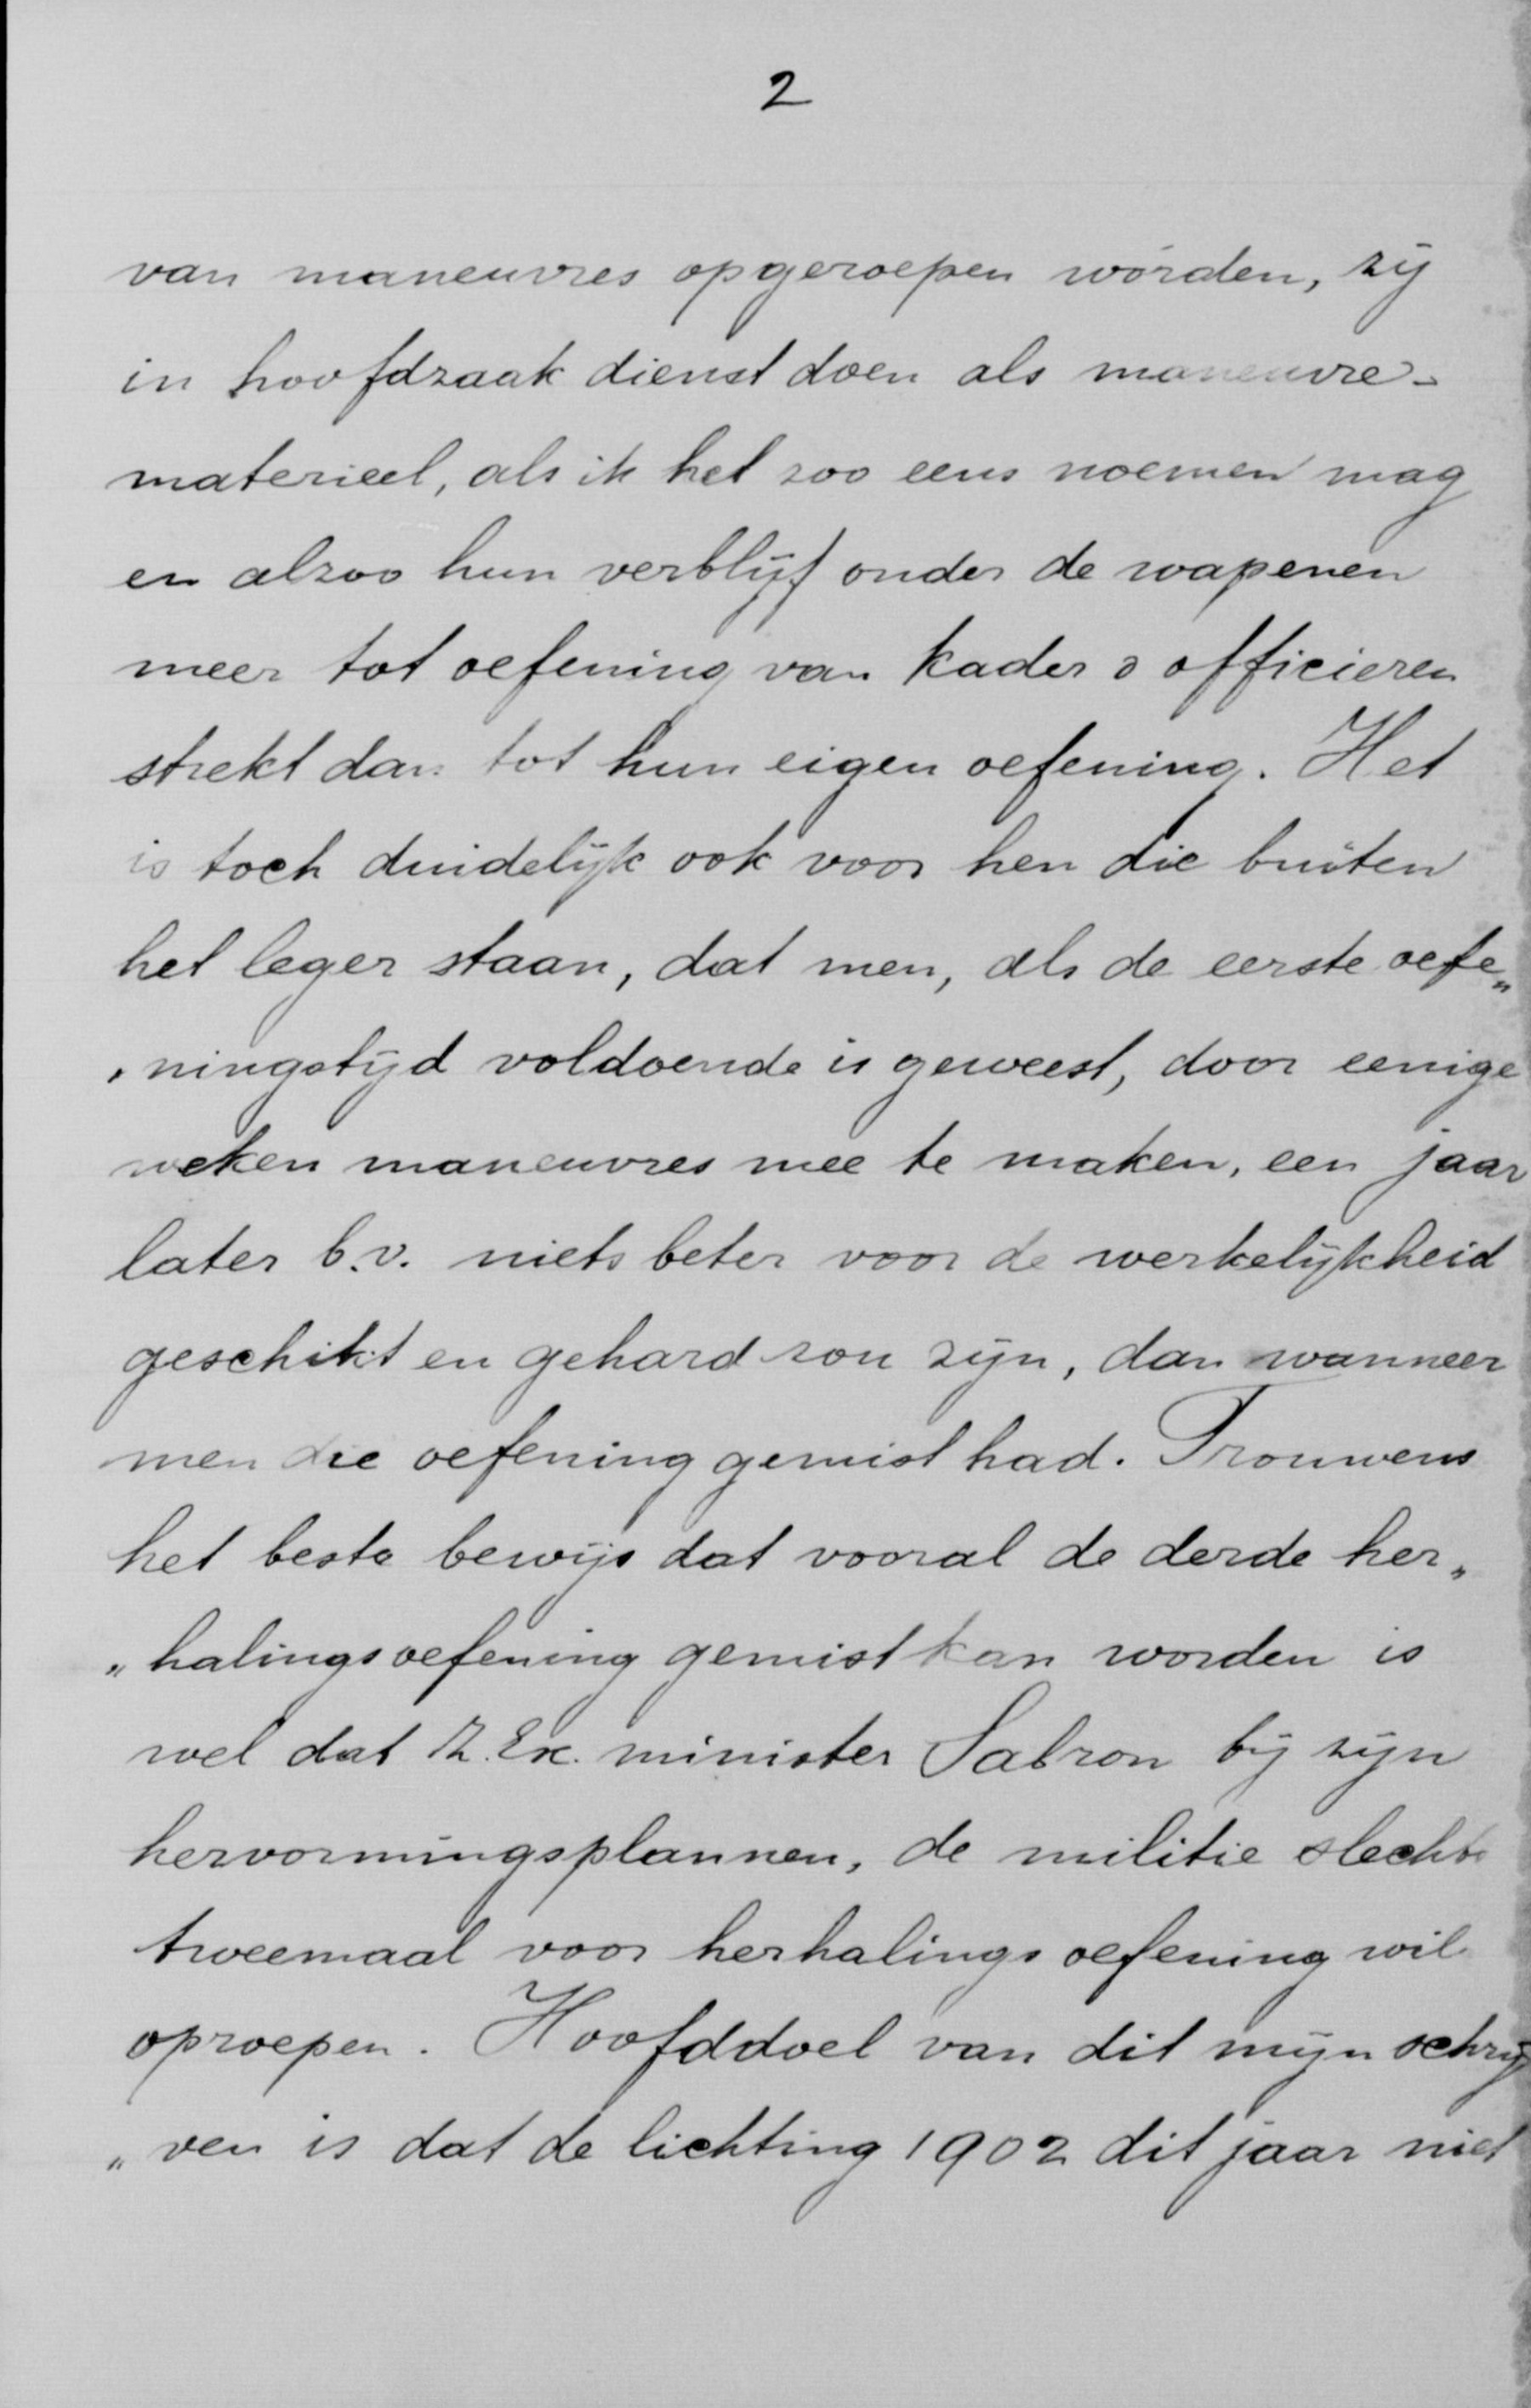 2
van maneuvres opgeroepen worden, zij
in hoofdzaak dienst doen als maneuvre-
materieel, als ik het zoo eens noemen mag
en alzoo hun verblijf onder de wapenen
meer tot oefening van kader & officieren
strekt dan tot hun eigen oefening. Het
is toch duidelijk ook voor hen die buiten
het leger staan, dat men, als de eerste oefe„
„ningstijd voldoende is geweest, door eenige
weken maneuvres mee te maken, een jaar
later b.v. niets beter voor de werkelijkheid
geschikt en gehard zou zijn, dan wanneer
men die oefening gemist had. Trouwens
het beste bewijs dat vooral de derde her„
„halingsoefening gemist kan worden is
wel dat Z. Ex. minister Sabron bij zijn
hervormingsplannen, de militie slechts
tweemaal voor herhalingsoefening wil
oproepen. Hoofddoel van dit mijn schrij
„ven is dat de lichting 1902 dit jaar niet